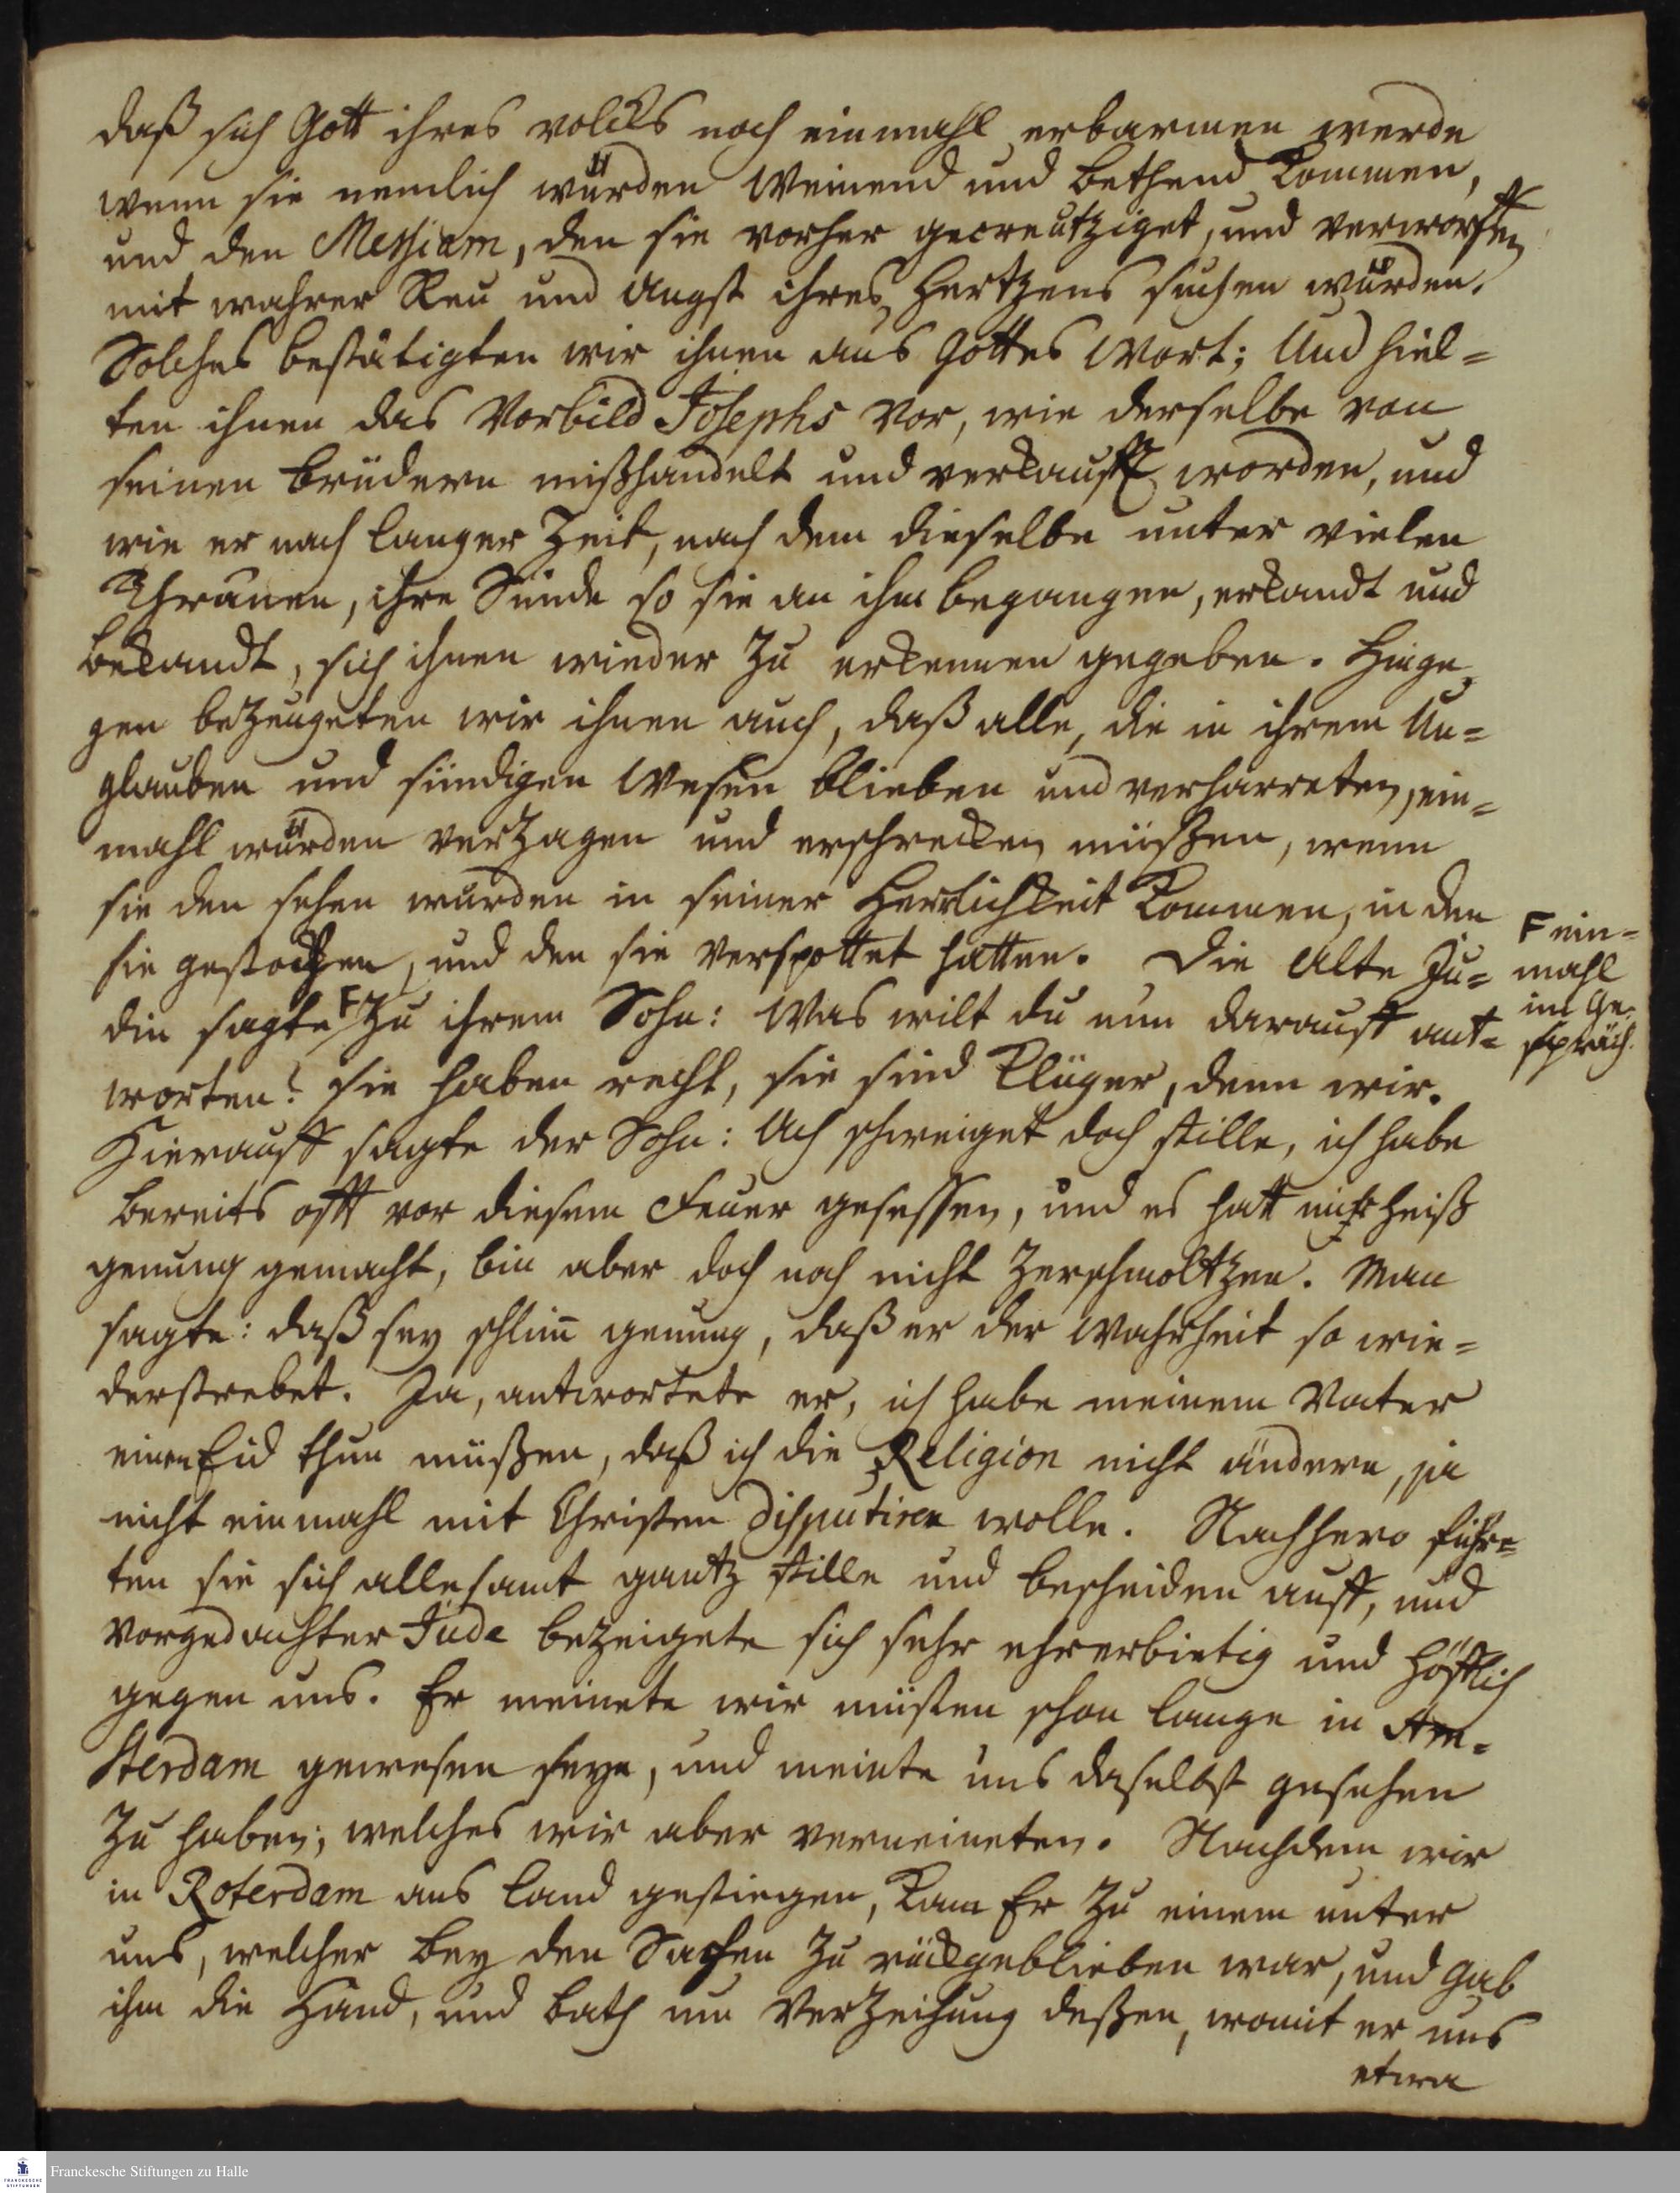 daß sich Gott ihres volcks noch einmahl erbarmen werde
wenn sie nemlich würden weinend und bethend kommen,
und den Messiam, den sie vorher gecreutziget, und verworffen
mit wahrer Reu und Angst ihres Hertzens suchen würden.
Solches bestätigten wir ihnen aus Gottes Wort; Und hiel=
ten ihnen das Vorbild Josephs vor, wie derselbe von
seinen brüdern mißhandelt und verkaufft worden, und
wie er nach langer Zeit, nach dem dieselbe unter vielen
Thränen, ihre Sünde so sie an ihm begangen, erkandt und
bekandt, sich ihnen wieder zu erkennen gegeben. Hinge=
gen bezeugeten wir ihnen auch, daß alle, die in ihrem Un=
glauben und sündigen Wesen blieben und verharreten, ein=
mahl würden verzagen und erschrecken müßen, wenn
sie den sehen wurden in seiner Herrlichkeit kommen, in den
sie gestochen, und den sie verspottet hatten. Die Alte Jü=
din sagte F zu ihrem Sohn: Was wilt du nun darauff ant=
worten? sie haben recht, sie sind klüger, denn wir.
F ein=
mahl
im Ge=
spräch.
Hierauff sagte der Sohn: Ach schweiget doch stille, ich habe
bereits offt vor diesem Feuer gesessen, und es hatt mir heiß
genung gemacht, bin aber doch noch nicht zerschmoltzen. Man
sagte: daß sey schlim̄ genung, daß er der Wahrheit so wie=
derstrebet. Ja, antwortete er, ich habe meinem Vater
einen Eid thun müßen, daß ich die Religion nicht ändern, ja
nicht einmahl mit Christen disputiren wolle. Nachhero führe=
ten sie sich allesamt gantz stille und bescheiden auff, und
vorgedachter Jude bezeigete sich sehr ehrerbietig und höfflich
gegen uns. Er meinete wir müsten schon lange in Am=
sterdam gewesen seyn, und meinte uns daselbst gesehen
zu haben; welches wir aber verneineten. Nachdem wir
in Roterdam ans Land gestiegen, kam Er zu einem unter
uns, welcher bey den Sachen zu rückgeblieben war, und gab
ihm die Hand, und bath um Verzeihung deßen, womit er uns
etwa
Franckesche Stiftungen zu Halle
FRANCKESCHE
STIFTUNGEN